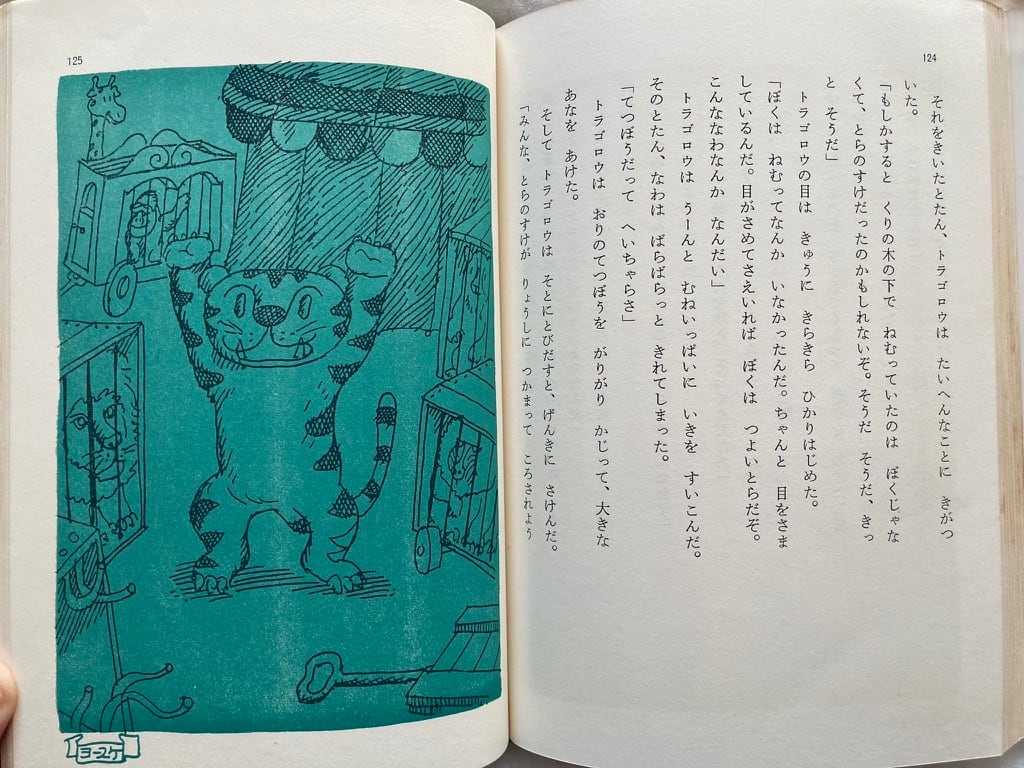 124
それをきいたとたん、トラゴロウは たいへんなことに きがつ
いた。
「もしかすると くりの木の下で ねむっていたのは ぼくじゃな
くて、とらのすけだったのかもしれないぞ。そうだ そうだ、きっ
と そうだ」
トラゴロウの目は きゅうに きらきら ひかりはじめた。
「ぼくは ねむってなんか いなかったんだ。ちゃんと 目をさま
しているんだ。目がさめてさえいれば ぼくは つよいとらだぞ。
こんななわなんか なんだい」
トラゴロウは うーんと むねいっぱいに いきを すいこんだ。
そのとたん、なわは ばらばらっと きれてしまった。
「てつぼうだって へいちゃらさ」
トラゴロウは おりのてつぼうを がりがり かじって、大きな
あなを あけた。
そして トラゴロウは そとにとびだすと、げんきに さけんだ。
「みんな、とらのすけが りょうしに つかまって ころされよう
125
ヨースケ